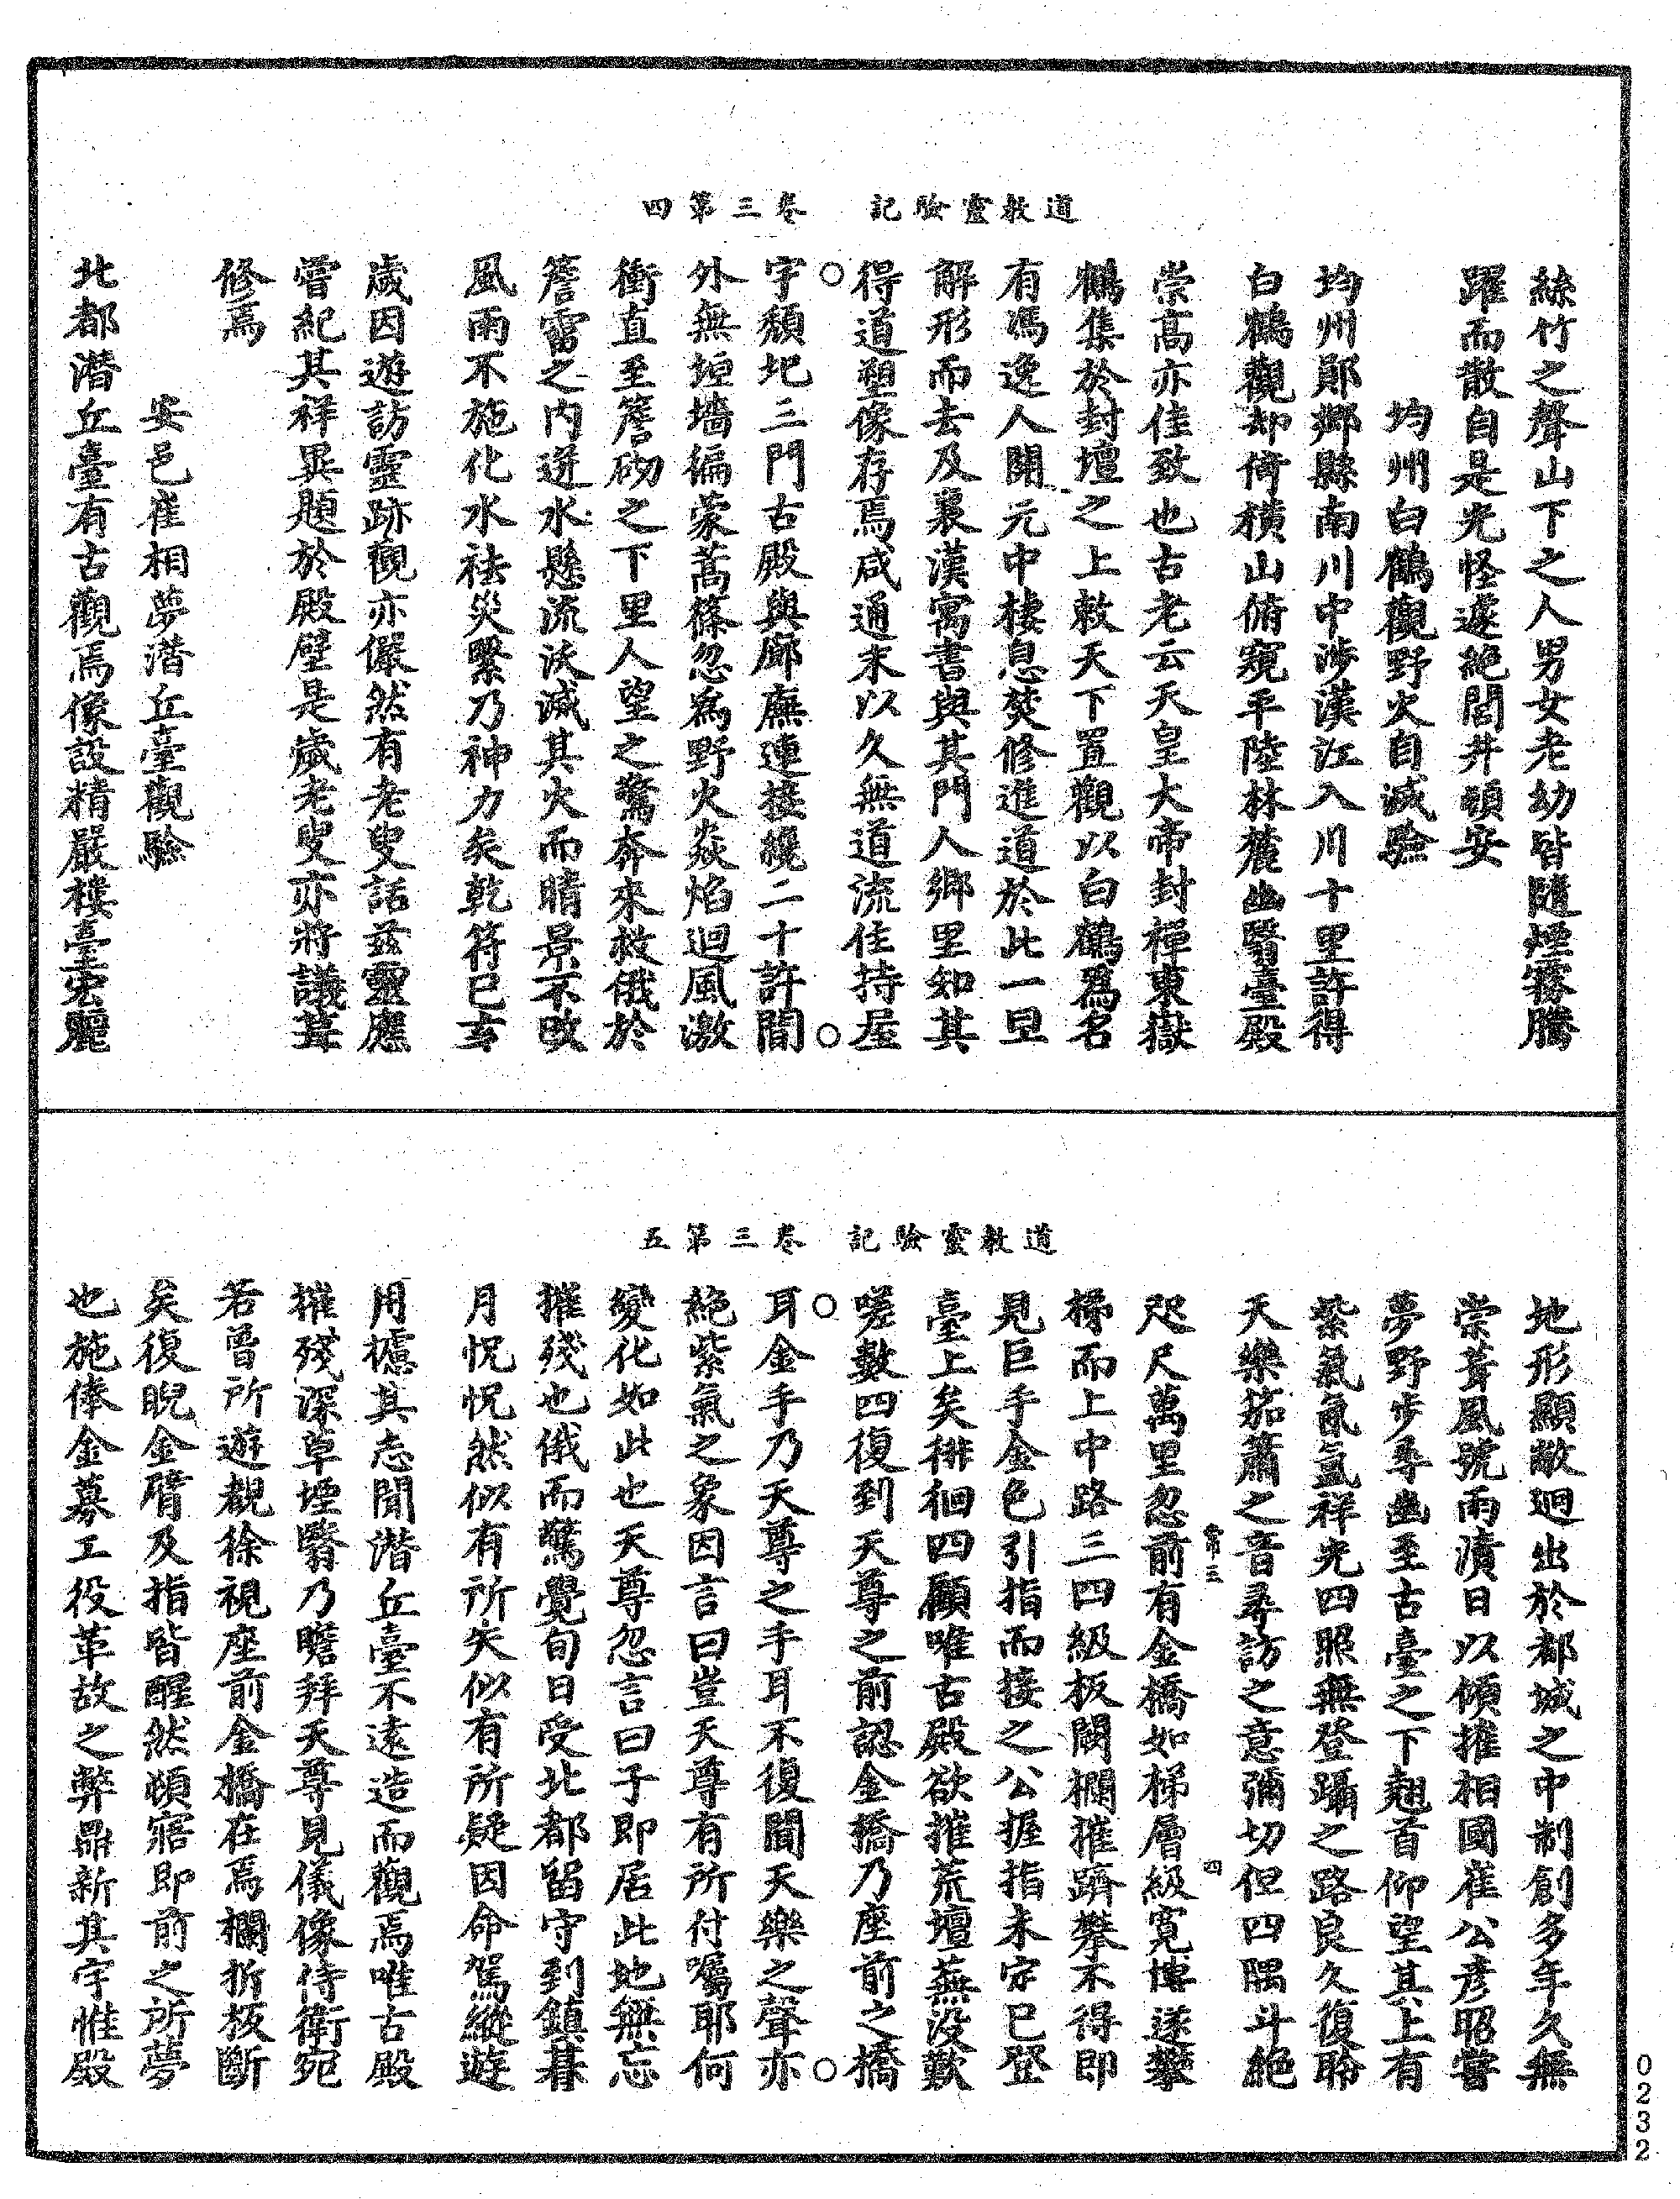 道教靈驗記　卷三第四
絲竹之聲山下之人男女老幼皆隨煙霧騰
躍而散自是光怪遂絕閭井頓安
均州白鶴觀野火自滅驗
均州鄖鄉縣南川中涉漢江入川十里許得
白鶴觀却倚橫山俯窺平陸林麓幽翳臺殿
崇高亦佳致也古老云天皇大帝封禪東嶽
鶴集於封壇之上敕天下置觀以白鶴爲名
有馮逸人開元中棲息焚修進道於此一旦
解形而去及襄漢寓書與其門人鄉里知其
得道塑像存焉咸通末以久無道流住持屋
宇頹圮三門古殿與廊廡連接纔二十許間
外無垣墻偏蒙蒿篠忽爲野火焱焰迴風激
衝直至簷砌之下里人望之驚奔來救俄於
簷霤之內迸水懸流沃滅其火而晴景不改
風雨不施化水祛災繄乃神力矣乾符己亥
歲因遊訪靈跡觀亦儼然有老叟話兹靈應
嘗紀其祥異題於殿壁是歲老叟亦將議葺
修焉
安邑崔相夢潛丘臺觀驗
北都潛丘臺有古觀焉像設精嚴樓臺宏麗
道教靈驗記　卷三第五
地形顯敞迴出於都城之中制創多年久無
崇葺風號雨漬日以傾摧相國崔公彥昭嘗
夢野步尋幽至古臺之下翹首仰望其上有
紫氣氤氳祥光四照無登躡之路良久復聆
天樂笳簫之音尋訪之意彌切但四隅斗絕
常三　四
咫尺萬里忽前有金橋如梯層級寬博遂攀
梯而上中路三四級板闕欄摧躋攀不得即
見巨手金色引指而接之公握指未定已登
臺上矣徘徊四顧唯古殿欲摧荒壇蕪没歎
嗟數四復到天尊之前認金橋乃座前之橋
耳金手乃天尊之手耳不復聞天樂之聲亦
絕紫氣之象因言曰豈天尊有所付囑耶何
變化如此也天尊忽言曰子即居此地無忘
摧殘也俄而驚覺旬日受北都留守到鎮朞
月怳怳然似有所失似有所疑因命駕縱遊
用攄其志聞潛丘臺不遠造而觀焉唯古殿
摧殘深草堙翳乃瞻拜天尊見儀像侍衛宛
若曾所遊覩徐視座前金橋在焉欄折板斷
矣復睨金臂及指皆醒然頓寤即前之所夢
也施俸金募工役革故之弊鼎新其宇惟殿
0232